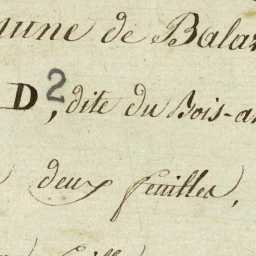 de Bala
D 2, dite du Bois-
deux feuilles,